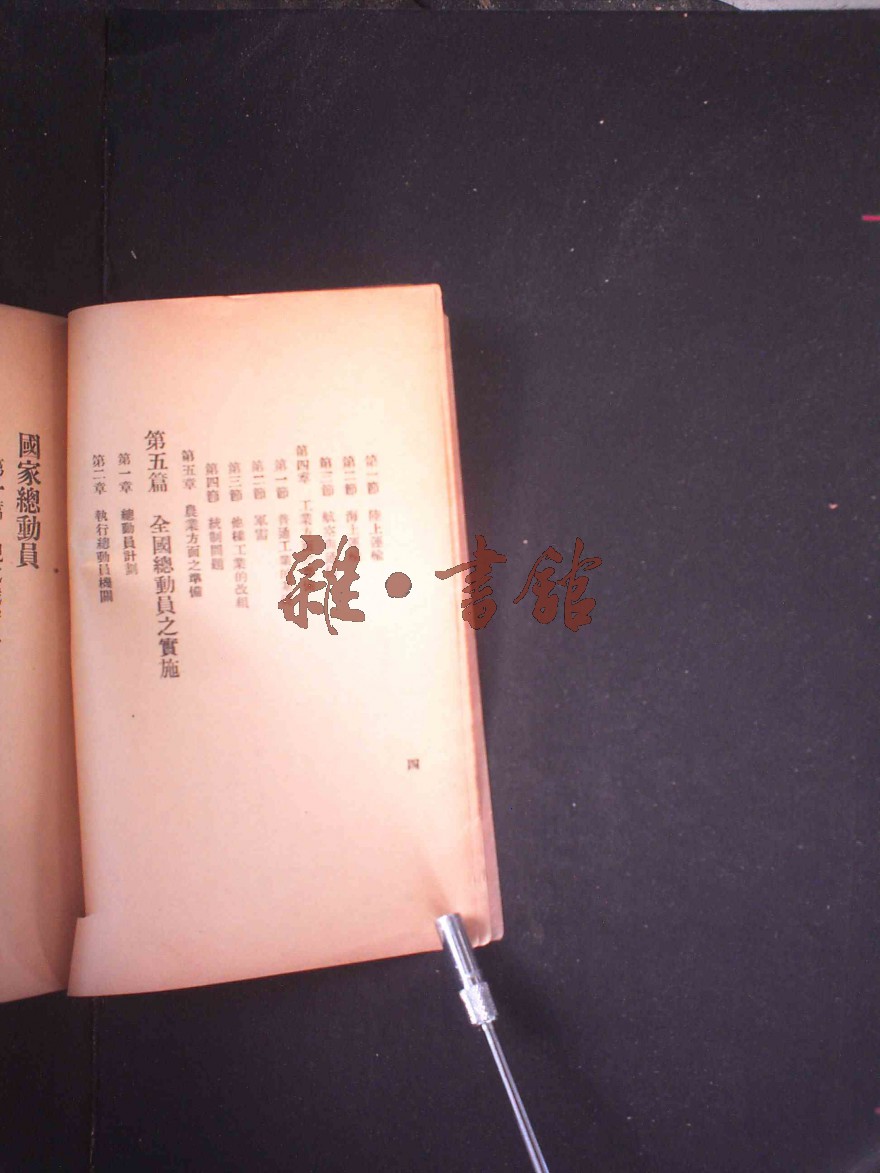 第一節　陸上運輸
第二節　海上運輸
第三節　航空
第四章　工業方
第一節　普通工業的
第二節　軍需
第三節　他種工業的改組
第四節　統制問題
第五章　農業方面之準備
第五篇　全國總動員之實施
第一章　總動員計劃
第二章　執行總動員機關
四
國家總動員
第一篇
雜·書館